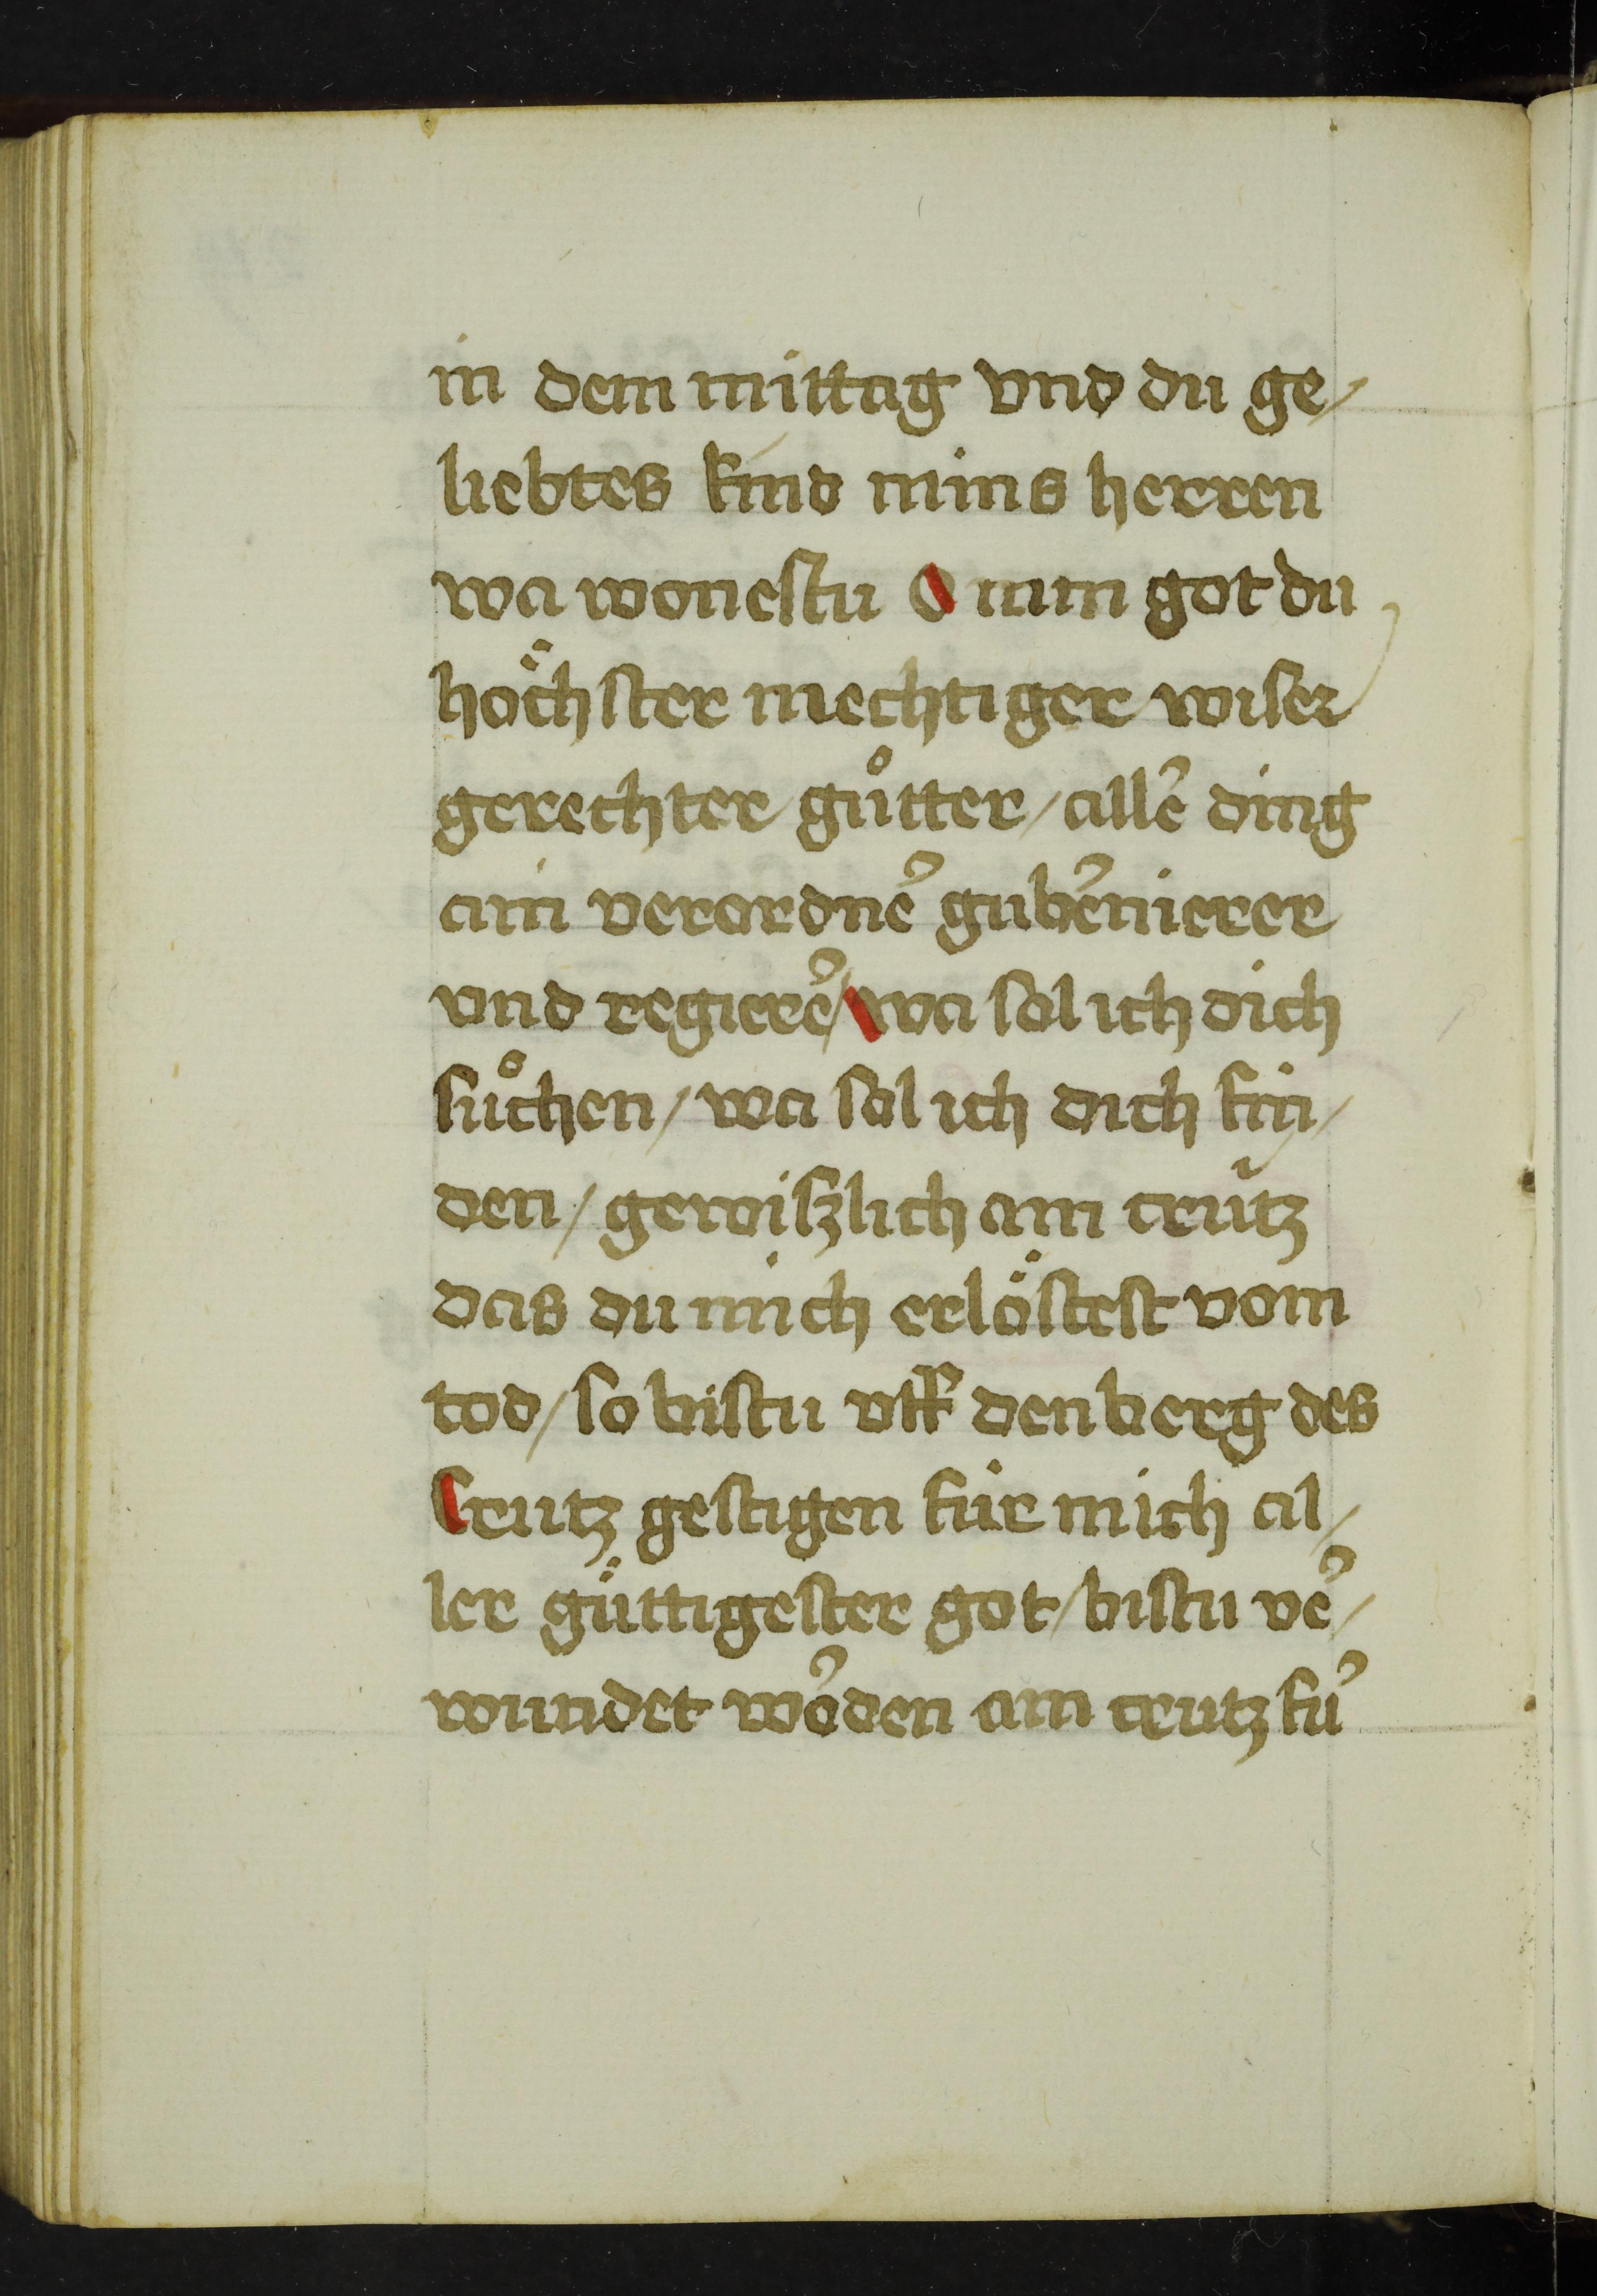 in dem mittag vnd du ge/
liebtes kind mins herren
wa wonestu O min got du
höchster mechtiger wiser
gerechter gůtter / alle᷑ ding
ain verordne᷑ gube᷑nierer
vnd regiere᷑ / wa sol ich dich
sůchen / wa sol ich dich fin/
den / gewiszlich am crŭtz
das du mich erlöstest vom
tod / so bistu vff den berg des
Crutz gestigen für mich al/
ler güttigester got / bistu ve᷑/
wundet wo᷑den am crutz fu᷑